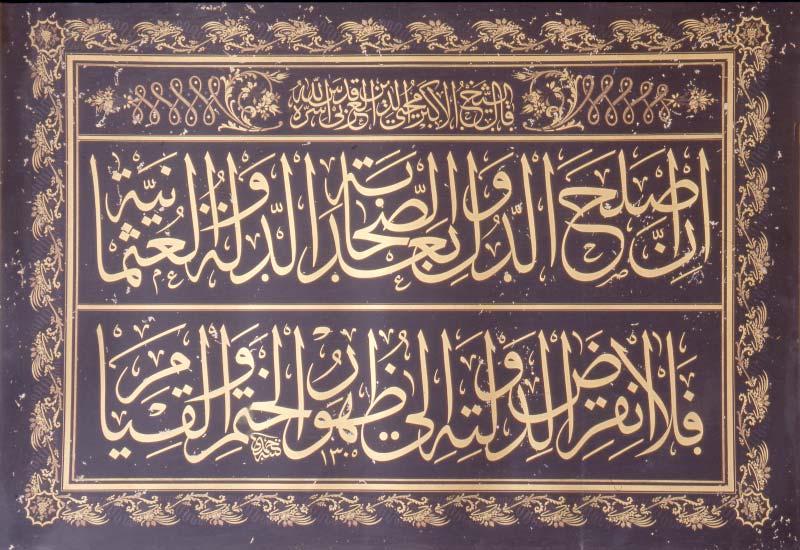 قال الشيخ الاكبر محيى الدين العربى قدس الله سره
انّ اصلح الدول بعد الصحابة الدولة العثمانية
فلا انقراض لدولته الى ظهور الختم والقيام